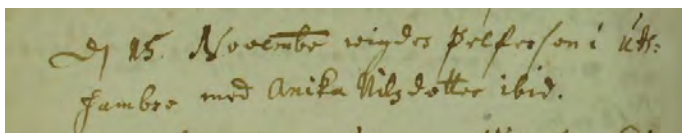 D 15. Novembr wigdes Pelferson i Utt:
hambre med Anika Nilsdotter ibid.